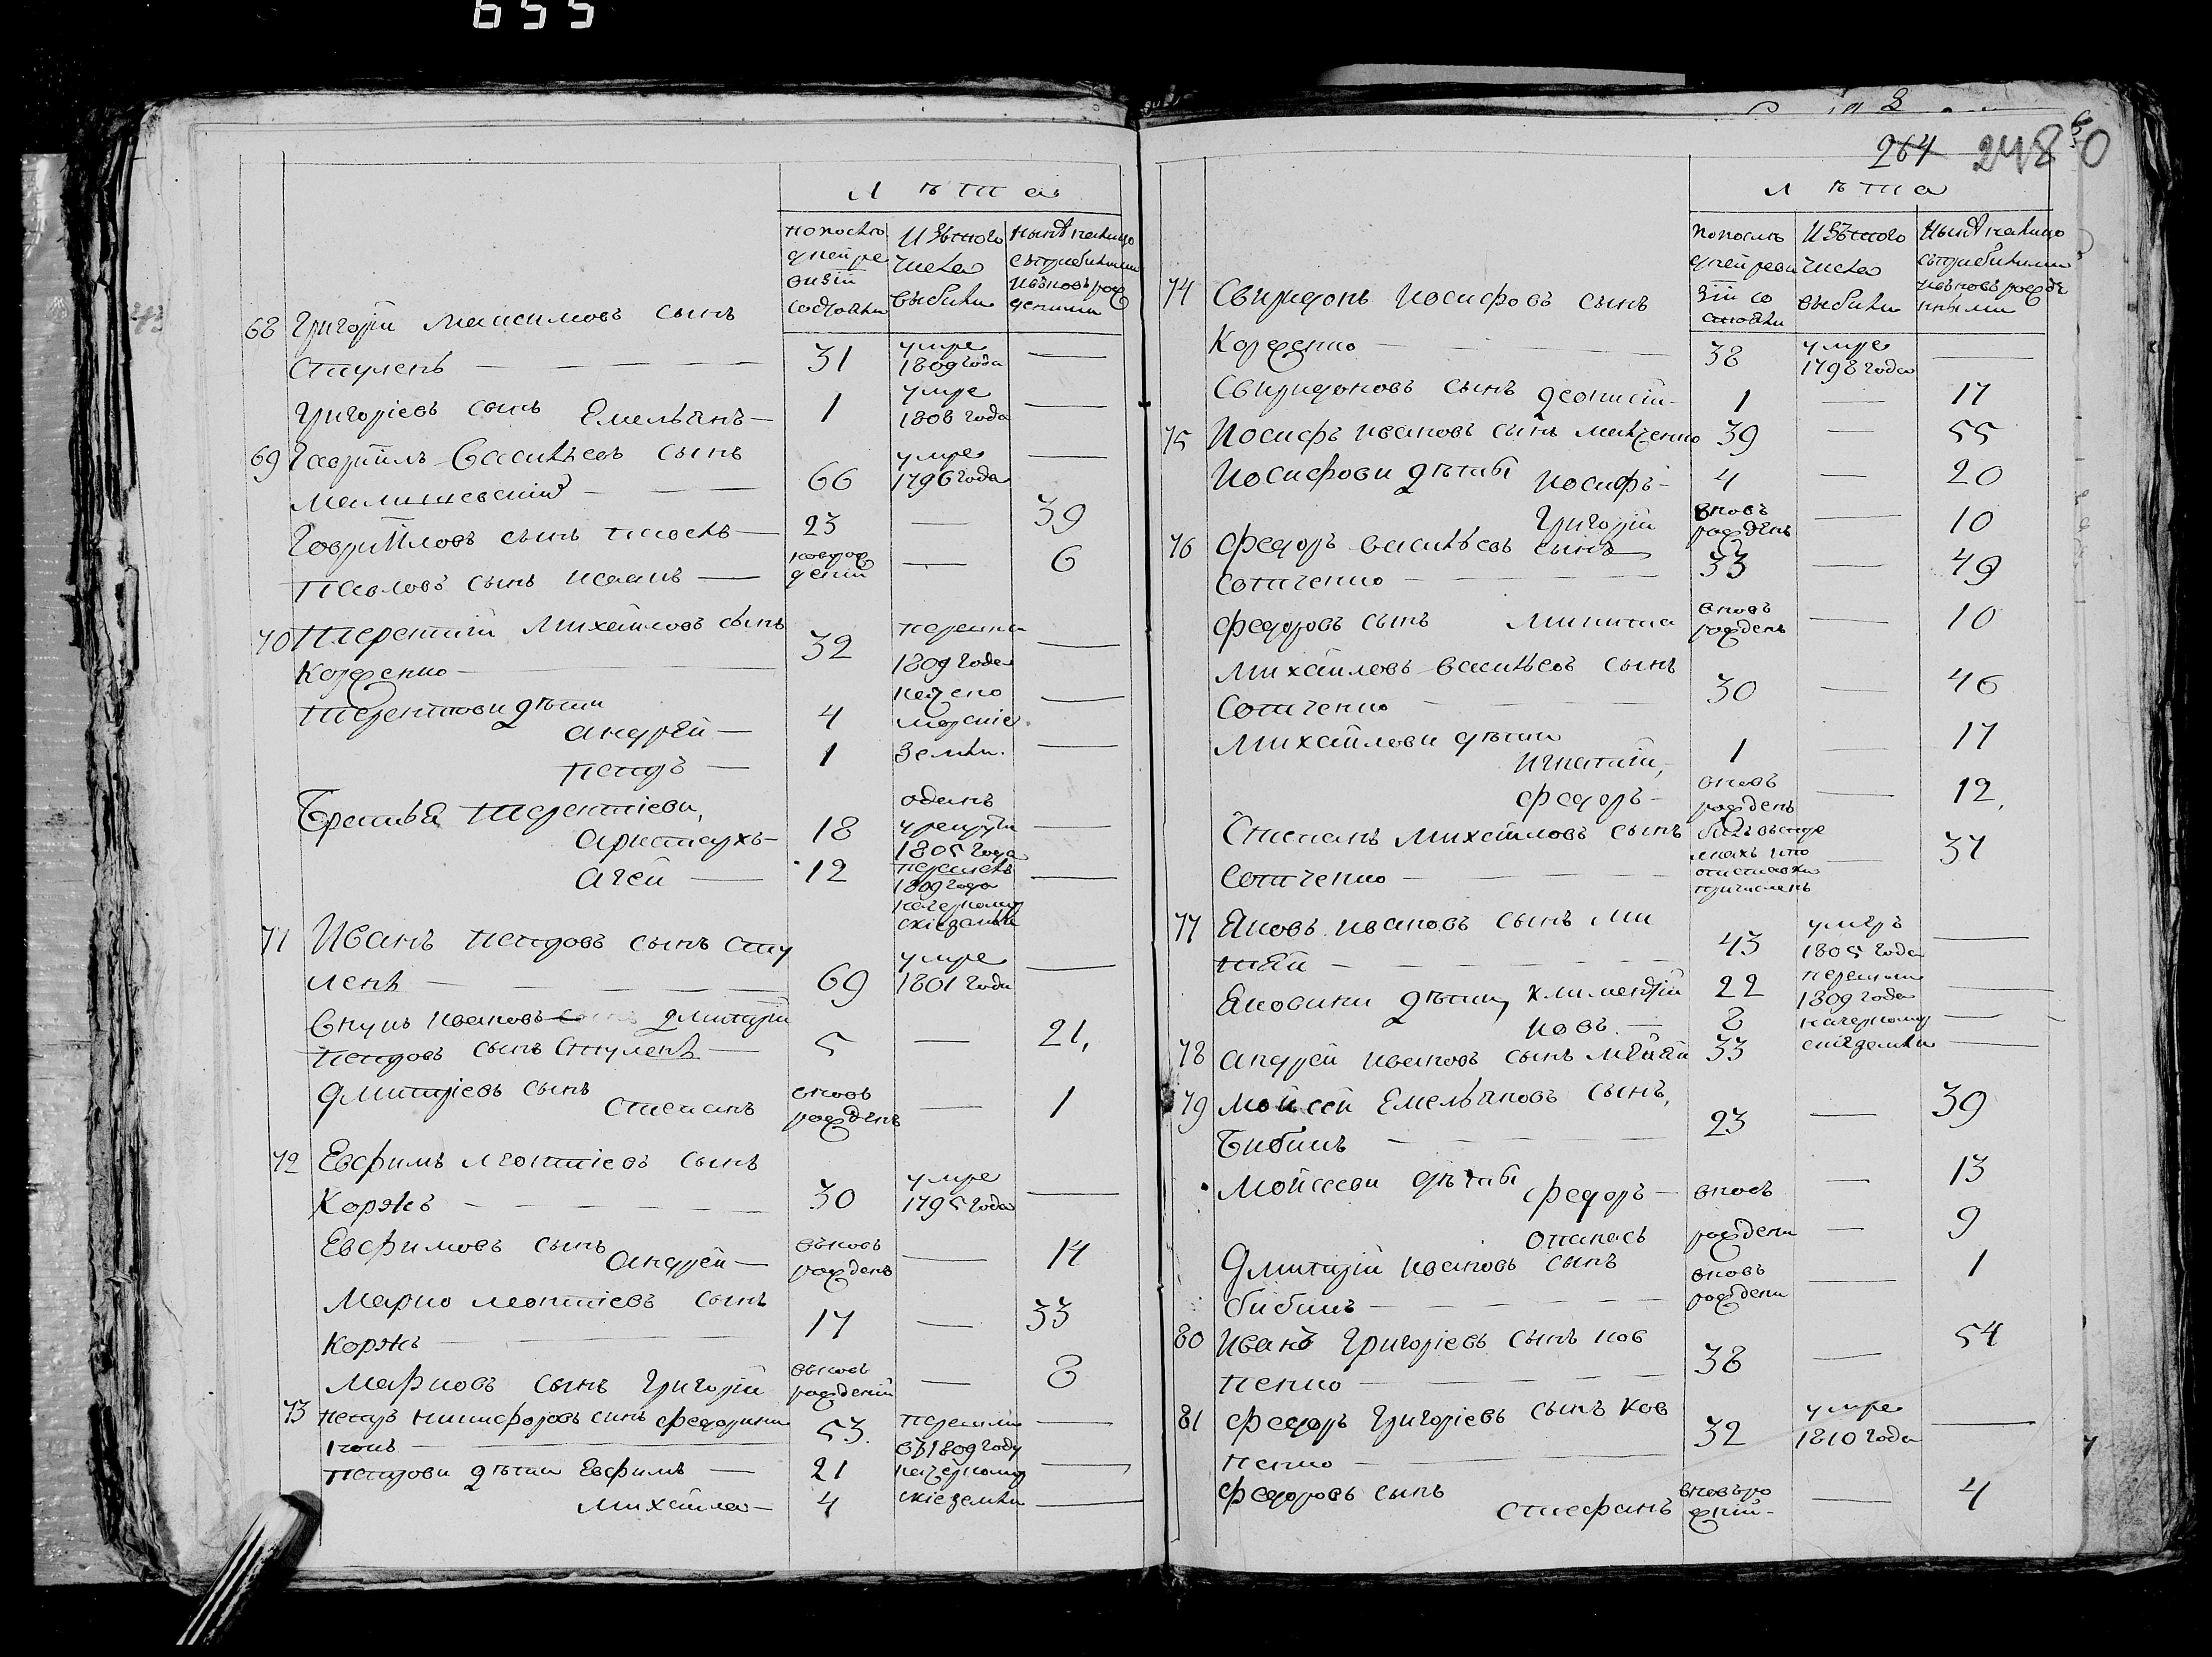 655
лѣта
по послѣ
дней ре
визіи
состояли
Изъ того
числа
выбыли
нынѣ налицо
съ прибылыми
и вновь рож
денными
68 Григорій Максимовъ сынъ
Ступень — 31 умре 1809 года —
Григоріевъ сынъ Емельянъ — 1 умре 1808 года —
69 Гавріилъ Васильевъ сынъ
Малишевскій — 66 умре 1796 года —
Гавріиловъ сынъ Павелъ — 23 — 39
Павловъ сынъ Исаакъ — новорож деній — 6
70 Терентій Михайловъ сынъ
Корженко — 32 перешли 1809 года —
Терентіови дѣти
Андрей — 4 на черно морскіе —
Петръ — 1 земли. —
Братья Терентіеви,
Аристархъ — 18 одинъ 1805 года —
Агей — 12 перешелъ 1809 года на черномор скіе земли —
71 Иванъ Петровъ сынъ Сту
пень — 69 умре 1801 года —
Внукъ Ивановъ Дмитрій
Петровъ сынъ Ступень — 5 — 21,
Дмитріевъ сынъ Степанъ вновь рожденъ — 1
72 Евфимъ Леонтіевъ сынъ
Коржъ — 30 умре 1795 года —
Евфимовъ сынъ Андрей — вновь рожденъ — 14
Марко Леонтіевъ сынъ
Коржъ — 17 — 33
Марковъ сынъ Григорій вновь рожденій — 8
73 Петръ Никифоровъ сынъ Федорини
нокъ — 53. перешли въ 1809 году —
Петрови дѣти Евфимъ — 21 на черномор —
Михайло — 4 скіе земли —
264 248
лѣта
по послѣ
дней реви
зіи со
стояли
Изъ того
числа
выбыли
Нынѣ налицо
съ прибылыми
и вновь рожде
нными
74 Свиридонъ Иосифовъ сынъ
Корженко — 38 умре 1798 года —
Свиридоновъ сынъ Деонисій — 1 — 17
75 Иосифъ Ивановъ сынъ 39 — 55
Иосифови дѣты Иосифъ — 4 — 20
Григорій вновь рожденъ — 10
76 Федоръ Васильевъ сынъ
Сотченко — 33 — 49
Федоровъ сынъ Микита вновь рожденъ — 10
Михайловъ Васильевъ сынъ
Сотченко — 30 — 46
Михайлови дѣти
Игнатій, 1 — 17
Федоръ — вновь рожденъ — 12,
Степанъ Михайловъ сынъ
Сотченко — причисленъ — 37
77 Яковъ Ивановъ сынъ Ми
тяй — 43 умеръ 1805 года —
Яковини дѣти, Климентій 22 перешли 1809 года —
8 на черномор —
78 Андрей Ивановъ сынъ 33 скіе земли —
79 Мойсей Емельяновъ сынъ,
Бибикъ — 23 — 39
Мойсееви дѣты Федоръ — вновь — 13
Опанасъ рождени — 9
Дмитрій Ивановъ сынъ
Бибикъ — вновь рождени — 1
80 Иванъ Григоріевъ сынъ Ков
пенко — 38 — 54
81 Федоръ Григоріевъ сынъ Ков
пенко — 32 умре 1810 года —
Федоровъ сынъ Стефанъ вновь ро — 4